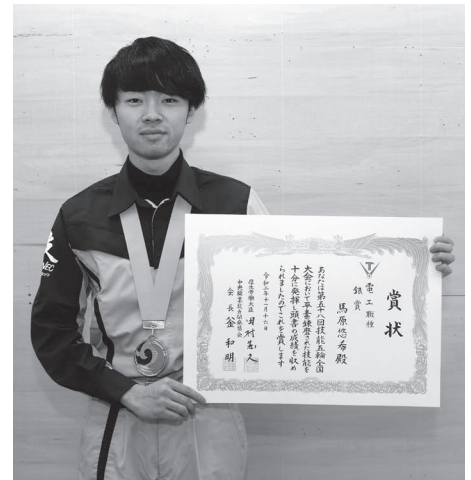 賞状
T
電工職種
銀賞
馬原悠希殿
あなたは第五十八回技能五輪全国
大会において平素錬磨された技能を
十分に発揮し頭書の成績を収め
られましたのでこれを賞します
令和二年十一月十六日
厚生労働大臣 田村憲久
中央職業能力開発協会
会長 釜和明